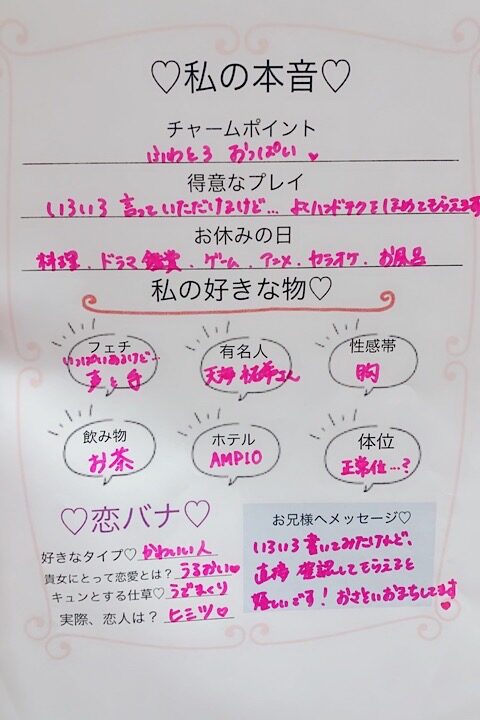 ♡私の本音♡
チャームポイント
ふわとろ おっぱい♥
得意なプレイ
いろいろ 言っていただけるけど… よくハンドテクをほめてもらえます
お休みの日
料理、ドラマ鑑賞、ゲーム、アニメ、カラオケ、お風呂
私の好きな物♡
フェチ
いっぱいあるけど…
声と手
有名人
天海祐希さん
性感帯
胸
飲み物
お茶
ホテル
AMPIO
体位
正常位…?
♡恋バナ♡
好きなタイプ♡ かわいい人
貴女にとって恋愛とは? うるおい♡
キュンとする仕草♡ うでまくり
実際、恋人は? ヒミツ♥
お兄様へメッセージ♡
いろいろ書いてみたけれど、
直接 確認してもらえると
嬉しいです! おさそいおまちしてます♥